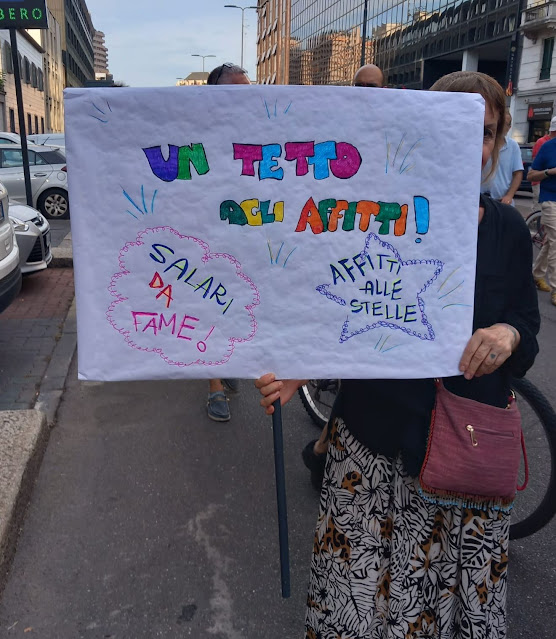 BERO
UN TETTO
AGLI AFFITTI!
SALARI
DA
FAME!
AFFITTI
ALLE
STELLE